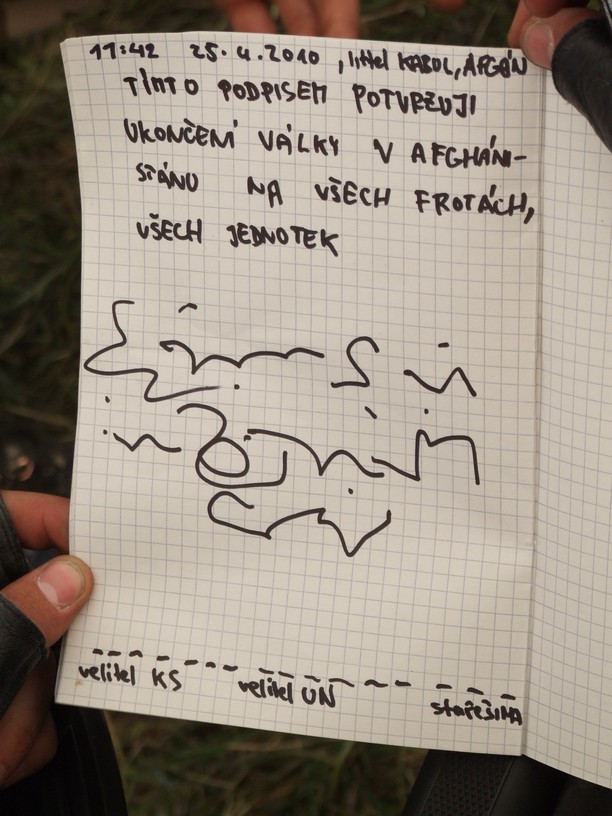 11:42 25.4.2010, littel KABOL, AFGÁN
TÍMTO PODPISEM POTVRZUJI
UKONČENÍ VÁLKY V AFGHÁNI-
STÁNU NA VŠECH FROTÁCH,
VŠECH JEDNOTEK
velitel KS velitel UN stařešina